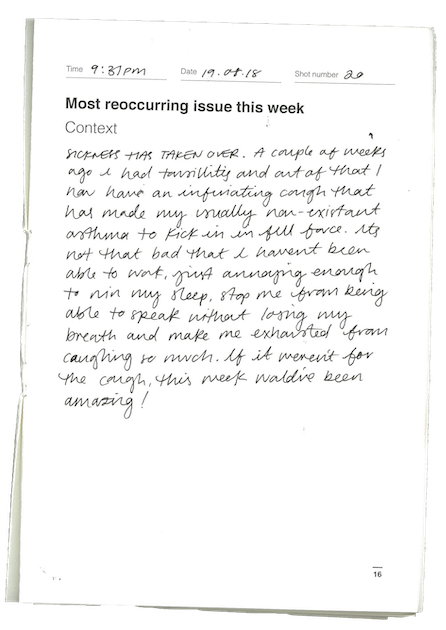 Time 9:37pm Date 19.08.18 Shot number 20
Most reoccurring issue this week
Context
SICKNESS HAS TAKEN OVER. A couple of weeks
ago i had tonsillitis and out of that I
now have an infuriating cough that
has made my usually non-existant
asthma to kick in in full force. Its
not that bad that i havent been
able to work, just annoying enough
to ruin my sleep, stop me from being
able to speak without losing my
breath and make me exhausted from
coughing so much. If it weren't for
the cough, this week would've been
amazing!
16